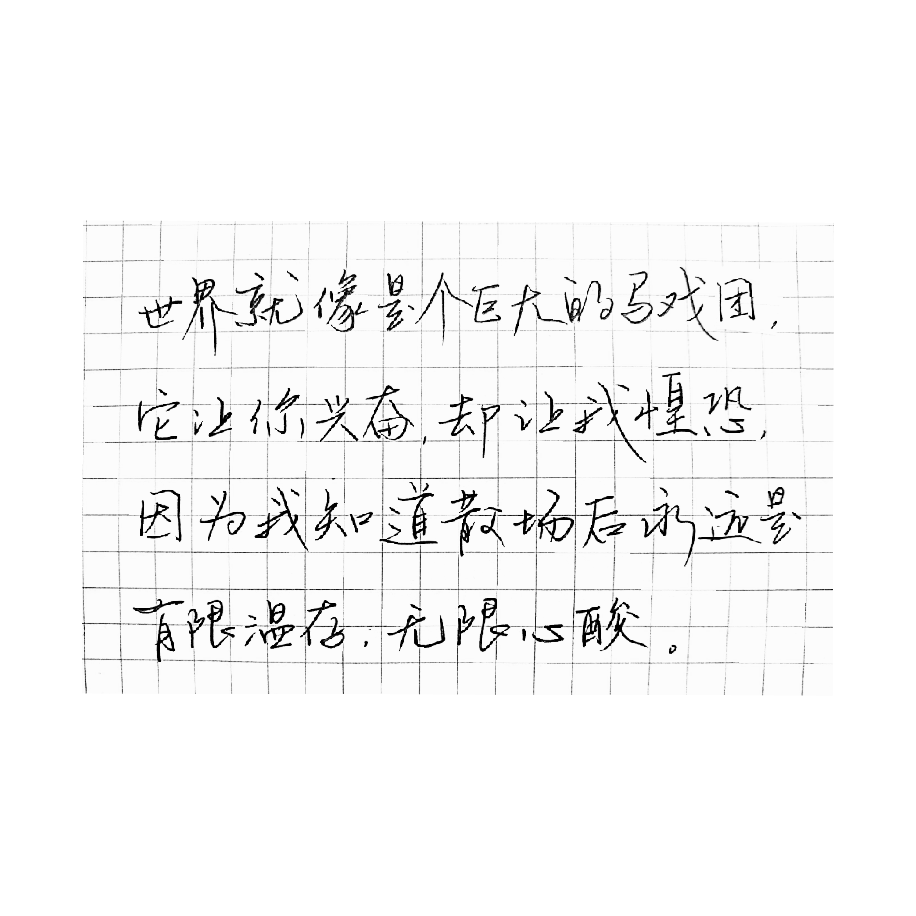 世界就像是个巨大的马戏团，
它让你兴奋，却让我惶恐，
因为我知道散场后永远是
有限温存，无限心酸。